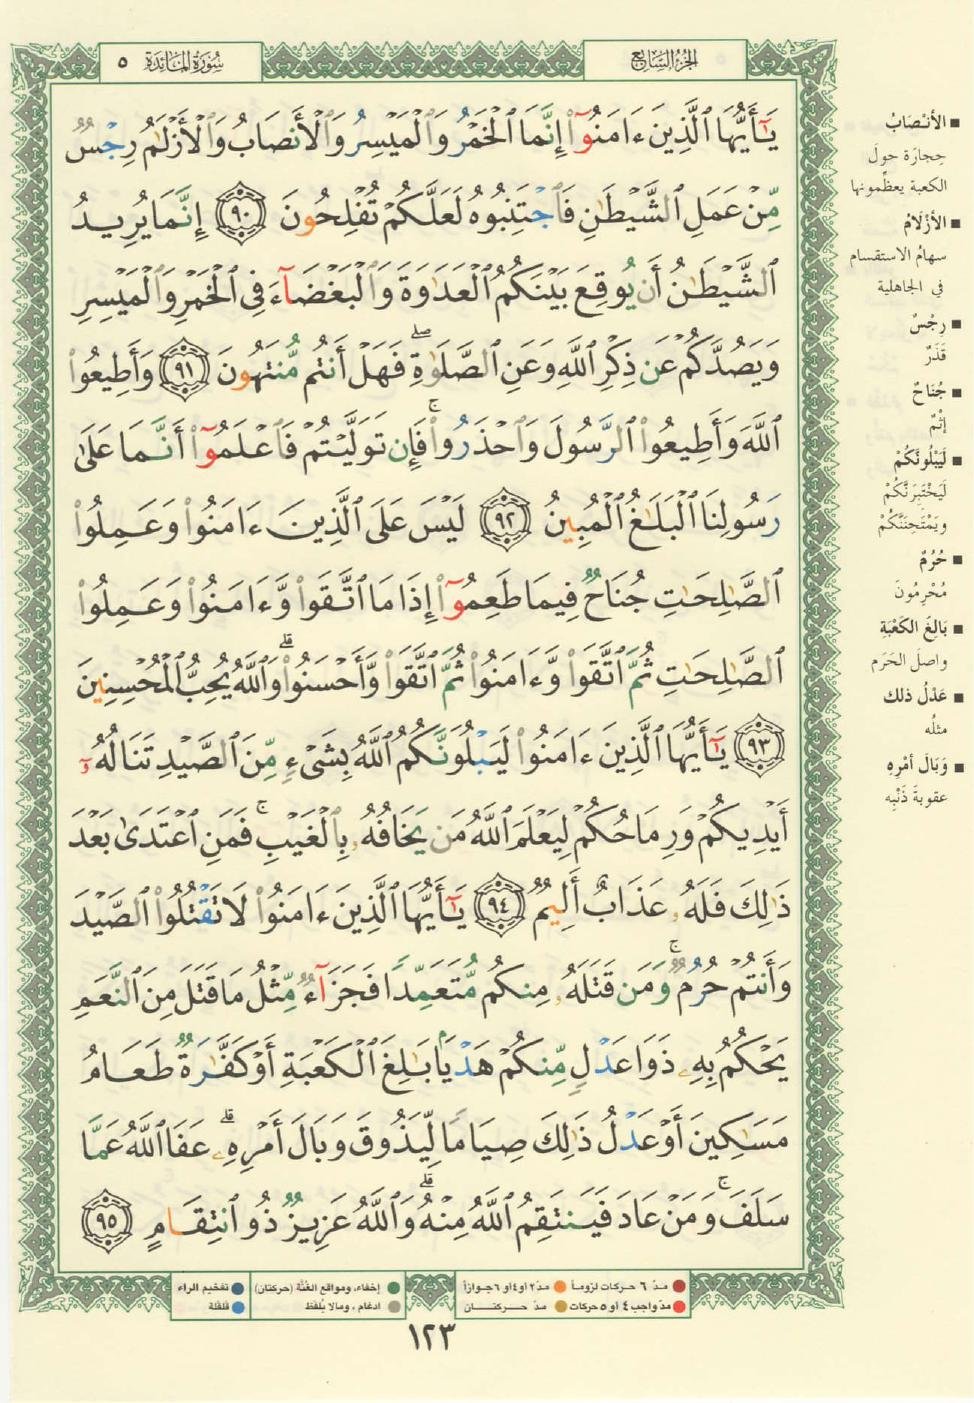 سُورَةُ المَائدة ٥
الجُزءُ السَّابِع
يَٰٓأَيُّهَا ٱلَّذِينَ ءَامَنُوٓا۟ إِنَّمَا ٱلْخَمْرُ وَٱلْمَيْسِرُ وَٱلْأَنصَابُ وَٱلْأَزْلَٰمُ رِجْسٌ
مِّنْ عَمَلِ ٱلشَّيْطَٰنِ فَٱجْتَنِبُوهُ لَعَلَّكُمْ تُفْلِحُونَ ٩٠ إِنَّمَا يُرِيدُ
ٱلشَّيْطَٰنُ أَن يُوقِعَ بَيْنَكُمُ ٱلْعَدَٰوَةَ وَٱلْبَغْضَآءَ فِى ٱلْخَمْرِ وَٱلْمَيْسِرِ
وَيَصُدَّكُمْ عَن ذِكْرِ ٱللَّهِ وَعَنِ ٱلصَّلَوٰةِ ۖ فَهَلْ أَنتُم مُّنتَهُونَ ٩١ وَأَطِيعُوا۟
ٱللَّهَ وَأَطِيعُوا۟ ٱلرَّسُولَ وَٱحْذَرُوا۟ ۚ فَإِن تَوَلَّيْتُمْ فَٱعْلَمُوٓا۟ أَنَّمَا عَلَىٰ
رَسُولِنَا ٱلْبَلَٰغُ ٱلْمُبِينُ ٩٢ لَيْسَ عَلَى ٱلَّذِينَ ءَامَنُوا۟ وَعَمِلُوا۟
ٱلصَّٰلِحَٰتِ جُنَاحٌ فِيمَا طَعِمُوٓا۟ إِذَا مَا ٱتَّقَوا۟ وَّءَامَنُوا۟ وَعَمِلُوا۟
ٱلصَّٰلِحَٰتِ ثُمَّ ٱتَّقَوا۟ وَّءَامَنُوا۟ ثُمَّ ٱتَّقَوا۟ وَّأَحْسَنُوا۟ ۗ وَٱللَّهُ يُحِبُّ ٱلْمُحْسِنِينَ
٩٣ يَٰٓأَيُّهَا ٱلَّذِينَ ءَامَنُوا۟ لَيَبْلُوَنَّكُمُ ٱللَّهُ بِشَىْءٍ مِّنَ ٱلصَّيْدِ تَنَالُهُۥٓ
أَيْدِيكُمْ وَرِمَاحُكُمْ لِيَعْلَمَ ٱللَّهُ مَن يَخَافُهُۥ بِٱلْغَيْبِ ۚ فَمَنِ ٱعْتَدَىٰ بَعْدَ
ذَٰلِكَ فَلَهُۥ عَذَابٌ أَلِيمٌ ٩٤ يَٰٓأَيُّهَا ٱلَّذِينَ ءَامَنُوا۟ لَا تَقْتُلُوا۟ ٱلصَّيْدَ
وَأَنتُمْ حُرُمٌ ۚ وَمَن قَتَلَهُۥ مِنكُم مُّتَعَمِّدًا فَجَزَآءٌ مِّثْلُ مَا قَتَلَ مِنَ ٱلنَّعَمِ
يَحْكُمُ بِهِۦ ذَوَا عَدْلٍ مِّنكُمْ هَدْيًۢا بَٰلِغَ ٱلْكَعْبَةِ أَوْ كَفَّٰرَةٌ طَعَامُ
مَسَٰكِينَ أَوْ عَدْلُ ذَٰلِكَ صِيَامًا لِّيَذُوقَ وَبَالَ أَمْرِهِۦ ۗ عَفَا ٱللَّهُ عَمَّا
سَلَفَ ۚ وَمَنْ عَادَ فَيَنتَقِمُ ٱللَّهُ مِنْهُ ۗ وَٱللَّهُ عَزِيزٌ ذُو ٱنتِقَامٍ ٩٥
■ الأَنْصَابُ
حِجَارَة حولَ
الكعبة يعظِّمونها
■ الأزْلَامُ
سهامُ الاستقسام
في الجاهلية
■ رِجْسٌ
قَذَرٌ
■ جُنَاحٌ
إثْمٌ
■ لَيَبْلُوَنَّكُمُ
لَيَخْتَبِرَنَّكُمْ
ويَمْتَحِنَنَّكُمْ
■ حُرُمٌ
مُحْرِمُونَ
■ بَالِغَ الكَعْبَةِ
واصلَ الحَرَم
■ عَدْلُ ذلك
مثلُه
■ وَبَالَ أمْرِهِ
عقوبةَ ذَنْبِه
مدّ ٦ حركات لزوماً مدّ ٢ او ٤ او ٦ جوازاً
مدّ واجب ٤ أو ٥ حركات مدّ حركتان
إخفاء، ومواقع الغُنَّة (حركتان) تفخيم الراء
ادغام، ومالا يُلفَظ قلقلة
١٢٣